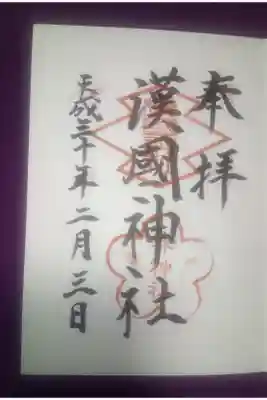 奉拝
漢國神社
平成三十年二月三日